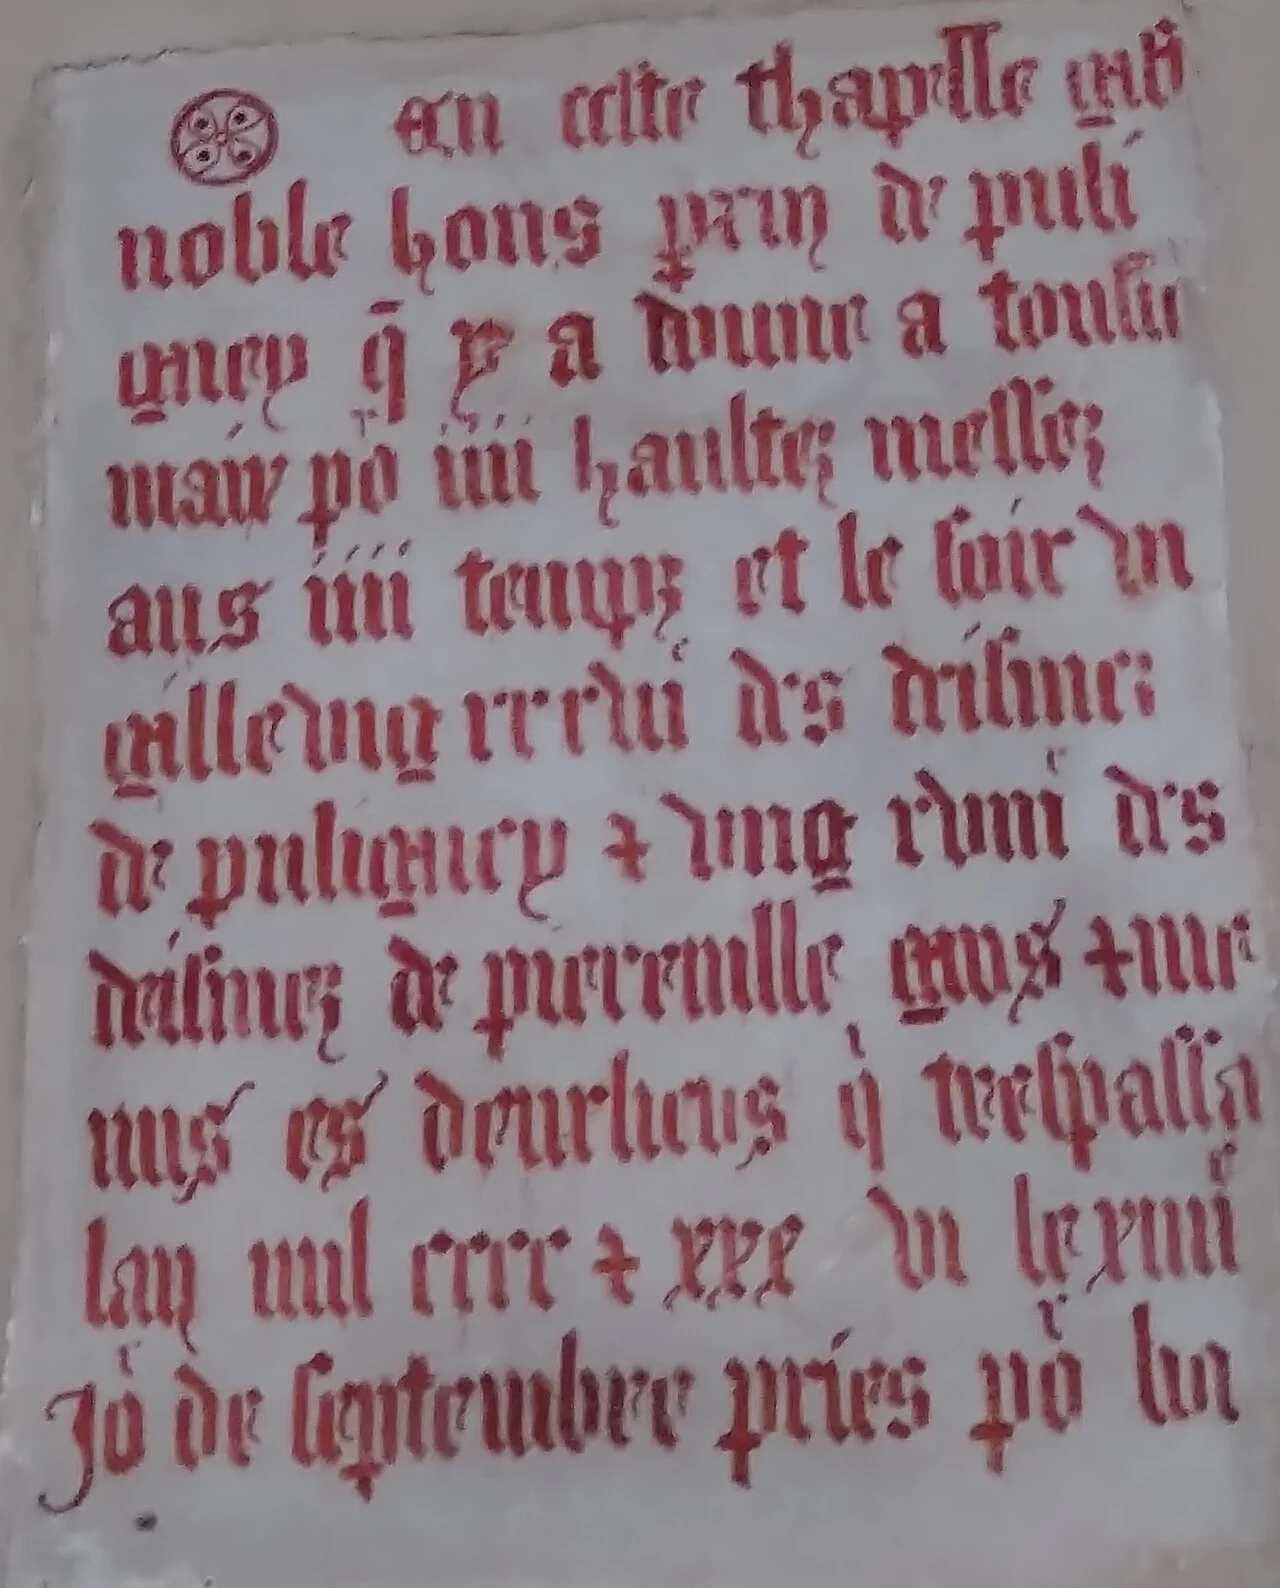 En ceste chapelle gist
noble hons perin de puli
gney q̄ y a donne a tousio
mais po^r iiii haultez messez
ans iiii tempz et le soir dn
gille ving xxxvii^e d's disme:
de puligney + ving xviii^e d's
dismez de pierreville gens + me
nus es deux lieus q^i trespassa
lan mil cccc + xxx vi le xviii^e
Jo^r de septembre pries po^r lui